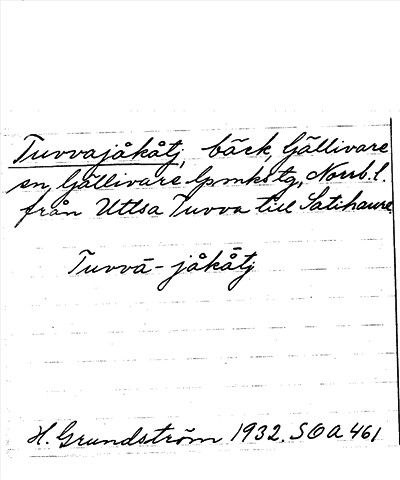 Tuvvajåkåtj, bäck, Gällivare
sn, Gällivare lpmkstg, Norrb. l.
från Uttsa Tuvva till Satihaure
Tuvvā-jåkåtj
H. Grundström 1932. SOA 461